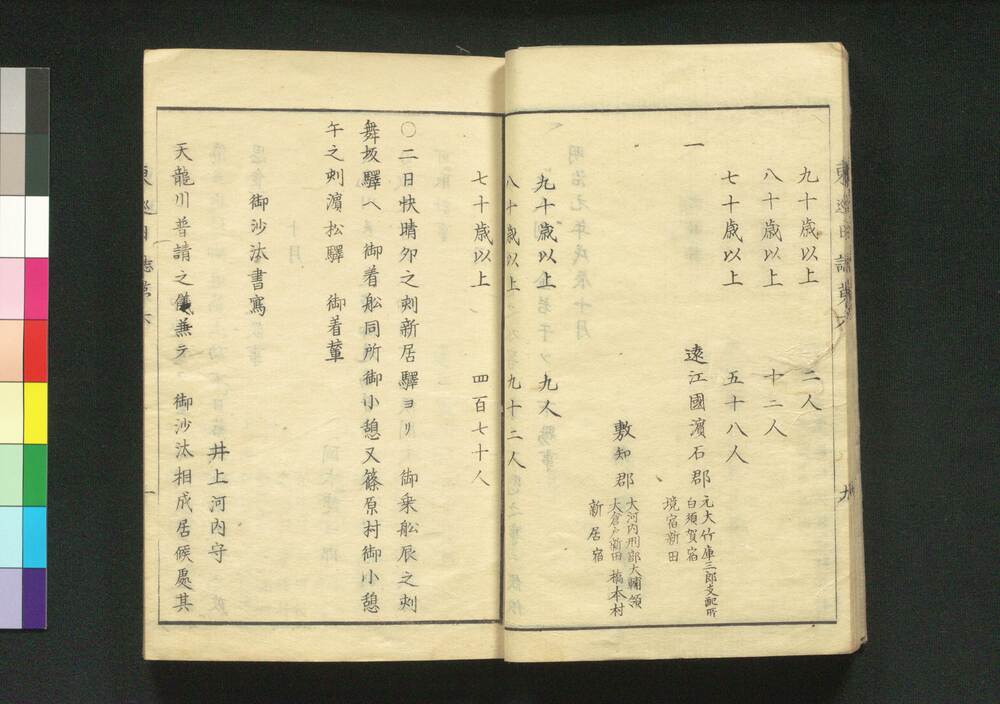 九十歳以上 二人
八十歳以上 十二人
七十歳以上 五十八人
一 遠江國濱石郡
元大竹庫三郎支配所
白須賀宿
境宿新田
敷知郡
大河内刑部大輔領
大倉戸新田 橋本村
新居宿
九十歳以上 九人
八十歳以上 九十二人
七十歳以上 四百七十人
〇二日快晴卯之刻新居驛ヨリ 御乗舩辰之刻
舞坂驛へ 御着舩同所御小憩又篠原村御小憩
午之刻濱松驛 御着輦
御沙汰書寫
井上河内守
天龍川普請之儀兼テ 御沙汰相成居候處其
東巡日誌第六
九